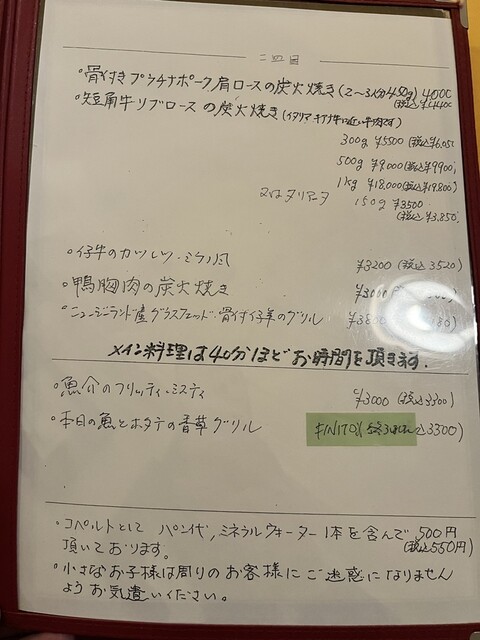 二皿目
・骨付きプラチナポーク肩ロースの炭火焼き(2〜3人分450g) 4000
(税込¥4400
・短角牛リブロースの炭火焼き(イタリア キアナ牛に近い牛肉です)
300g ¥5500 (税込¥6,050
500g ¥9,000(税込¥9900)
1kg ¥18,000(税込¥19,800)
又はタリアータ 150g ¥3500
(税込¥3,850)
・仔牛のカツレツ・ミラノ風 ¥3200 (税込 3520)
・鴨胸肉の炭火焼き ¥3000
・ニュージーランド産グラスフェッド・骨付仔羊のグリル ¥3800
メイン料理は40分ほどお時間を頂きます.
・魚介のフリッティ・ミスティ ¥3000 (税込 3300)
・本日の魚とホタテの香草グリル 込3300)
・コペルトとして パン代,ミネラルウォーター1本を含んで 500円
頂いております。 (税込550円)
・小さなお子様は周りのお客様にご迷惑になりません
ようお気遣いください。